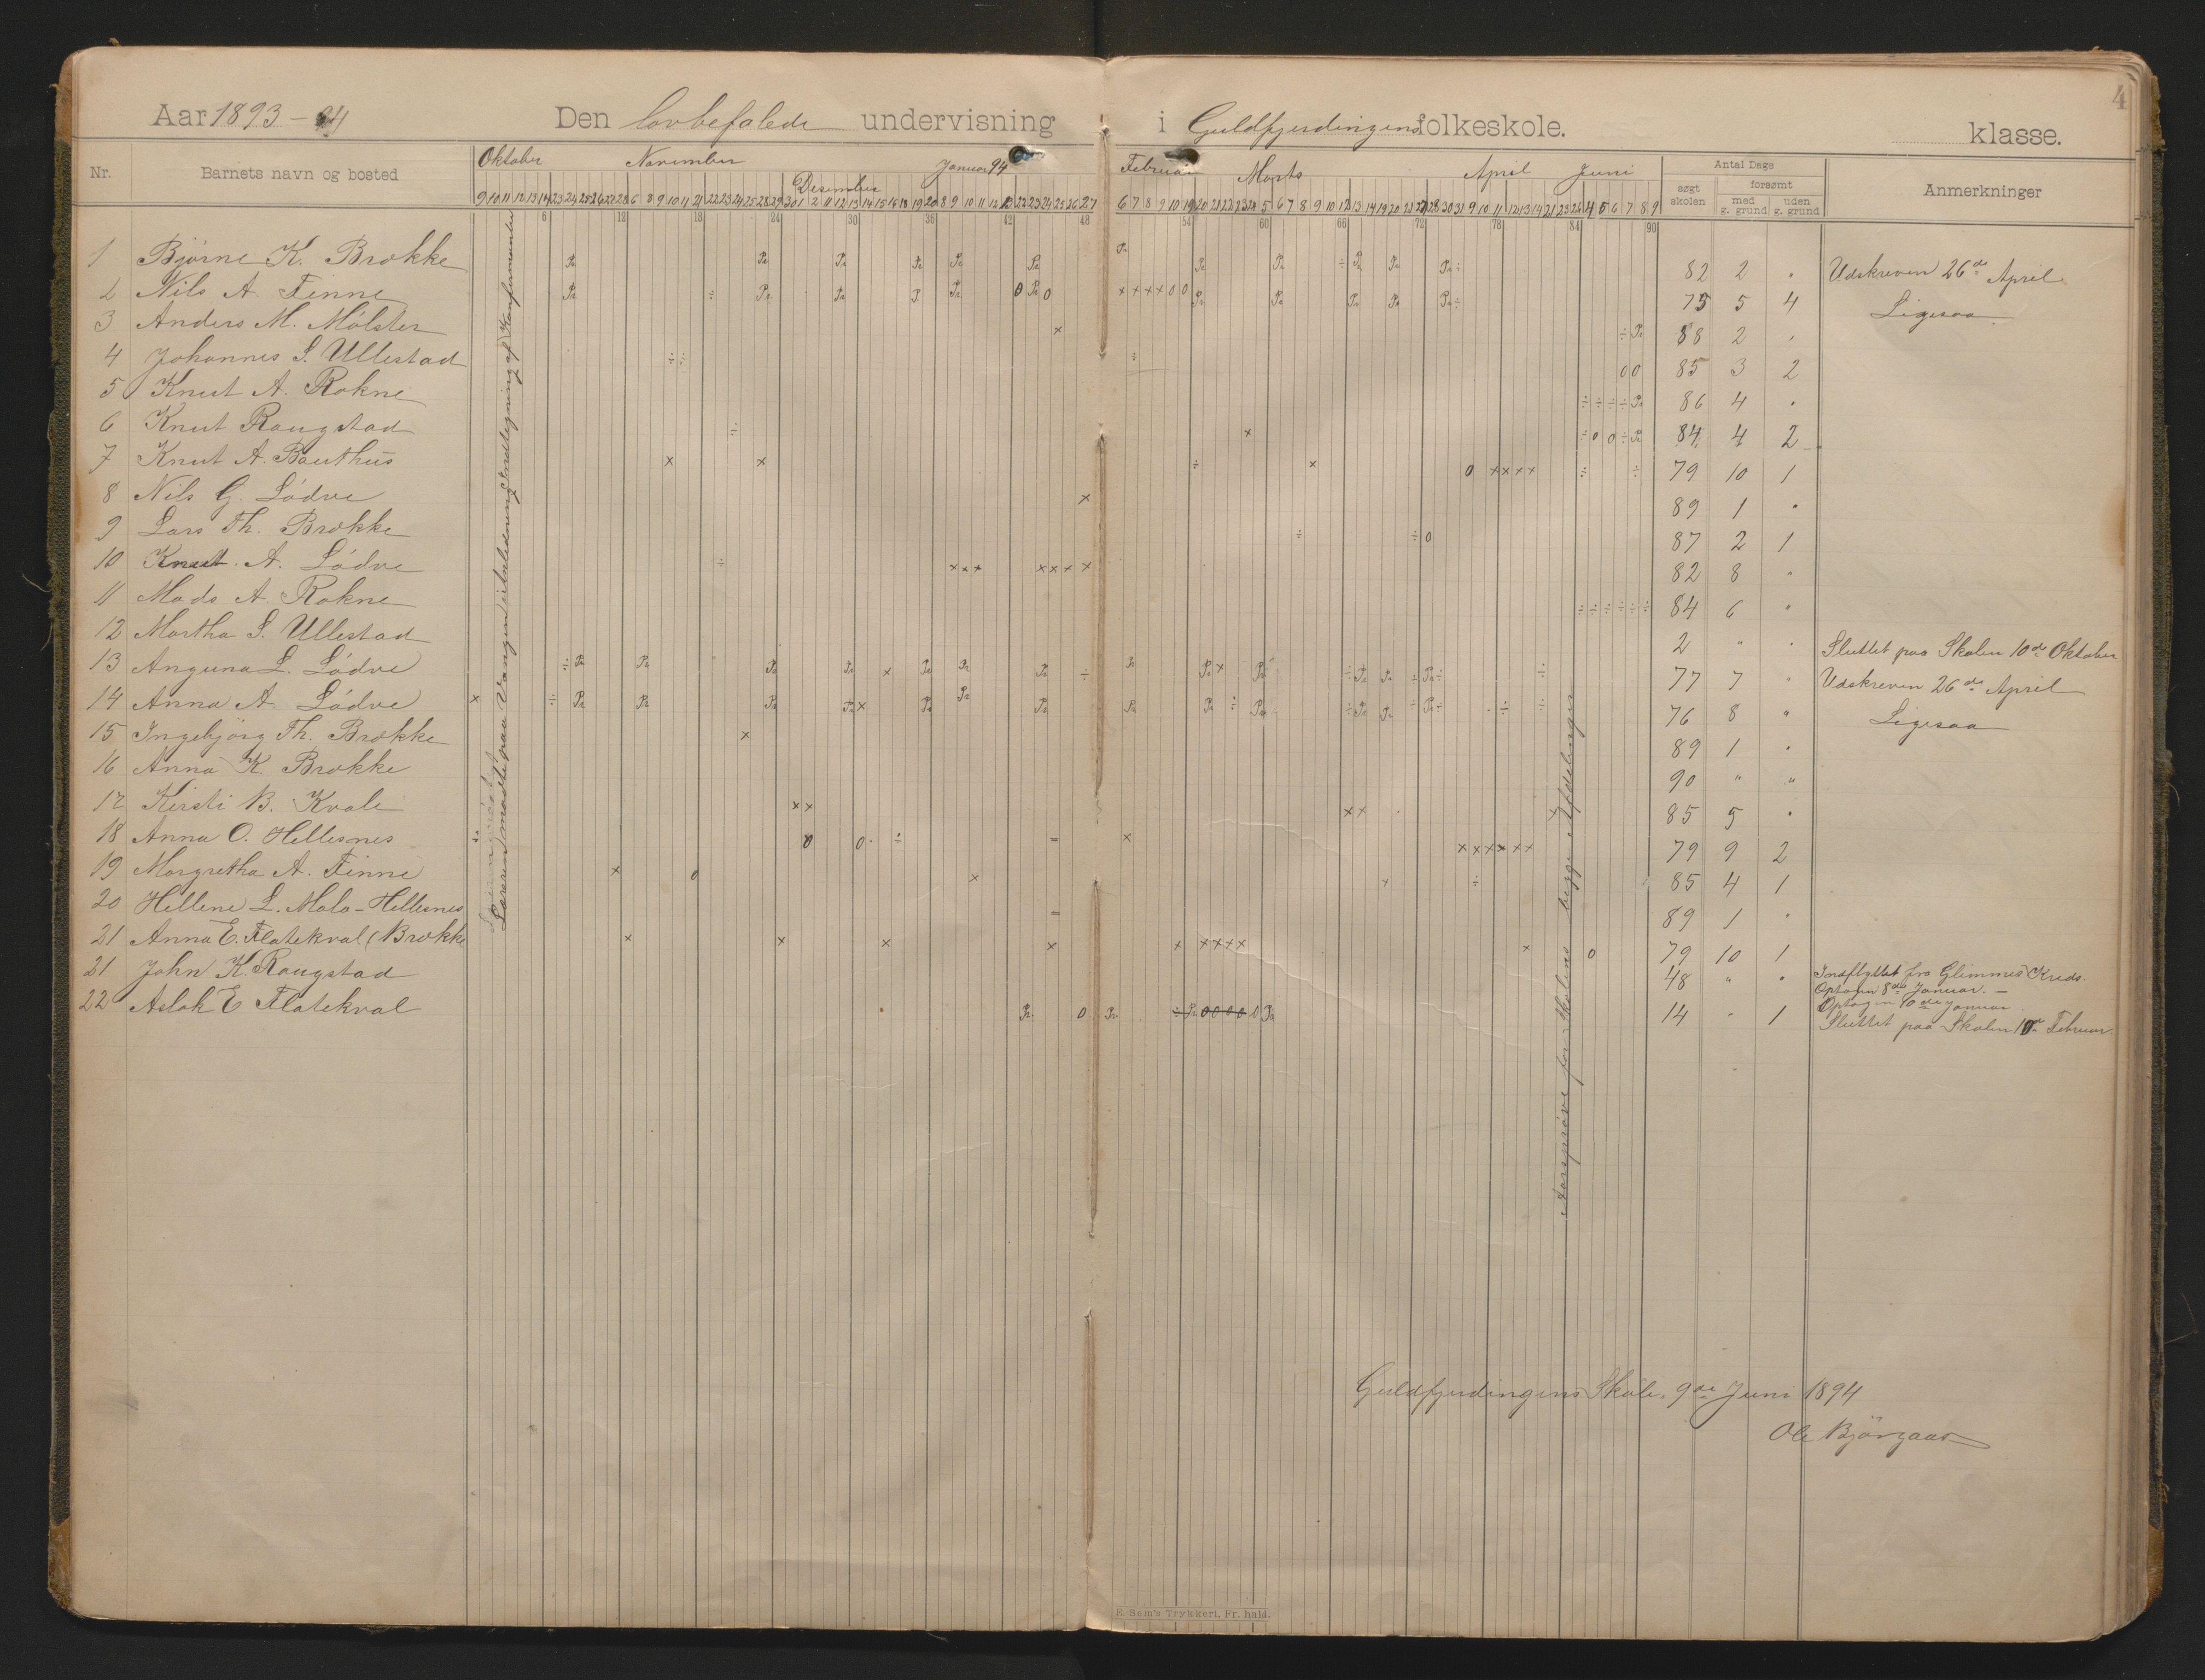 4
Aar 1893-94 Den lovbefalede undervisning i Guldfjerdingens folkeskole. klasse.
Nr. Barnets navn og bosted Oktober November Desember Januar 94 Februar Marts April Juni Antal Dage Anmerkninger
søgt skolen forsømt
med g. grund uden g. grund
6 12 18 24 30 36 42 48 54 60 66 72 78 84 90
1 Bjørne K. Brække 82 2 " Udskreven 26de April
2 Nils A. Finne 75 5 4 Ligesaa
3 Anders M. Mølster 88 2 "
4 Johannes S. Ullestad 85 3 2
5 Knut A. Rokne 86 4 "
6 Knut Raugstad 84 4 2
7 Knut A. Bauthus 79 10 1
8 Nils G. Lødve 89 1 "
9 Lars Th. Brække 87 2 1
10 Knut A. Lødve 82 8 "
11 Mads A. Rokne 84 6 "
12 Martha S. Ullestad 2 " " Sluttet paa Skolen 10de Oktober
13 Anguna L. Lødve 77 7 " Udskreven 26de April
14 Anna A. Lødve 76 8 " Ligesaa
15 Ingebjørg Th. Brække 89 1 "
16 Anna K. Brække 90 " "
17 Kirsti B. Kvale 85 5 "
18 Anna O. Hellesnes 79 9 2
19 Margretha A. Finne 85 4 1
20 Hellene L. Mala-Hellesnes 89 1 "
21 Anna E. Flatekval (Brække 79 10 1
21 John K. Raugstad 48 " " Indflyttet fra Glimmes Kreds.
Optagen 8de Januar. -
22 Aslak E Flatekval 14 " 1 Optagen 10de Januar
Sluttet paa Skolen 10de Februar.
Læreren maatte paa Vangen i Anledning Indtegning af Konfirmanter
Aarsprøve for Skolens begge Afdelinger
Guldfjerdingens Skole, 9de Juni 1894
Ole Bjørgaas
E. Sem's Trykkeri, Fr. hald.